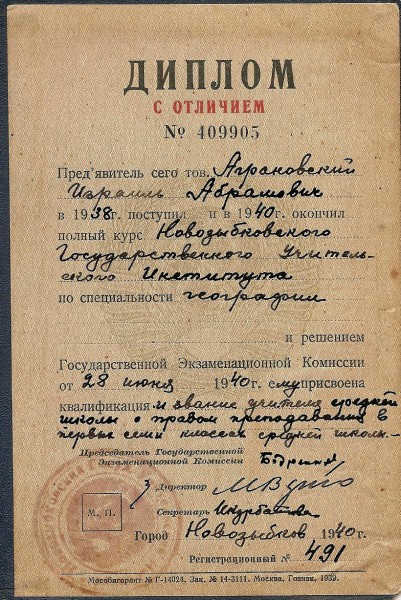 ДИПЛОМ
С ОТЛИЧИЕМ
№ 409905
Пред'явитель сего тов. Аграновский
Израиль Абрамович
в 1938г. поступил и в 1940г. окончил
полный курс Новозыбковского
Государственного Учитель-
ского Института
по специальности географии
и решением
Государственной Экзаменационной Комиссии
от 28 июня 1940г. ему присвоена
квалификация и звание учителя средней
школы с правом преподавания в
первых семи классах средней школы.-
Председатель Государственной
Экзаменационной Комиссии
Директор
Секретарь
М. П.
Город Новозыбков 1940г.
Регистрационный № 491
Мособлгорлит № Г-14024. Зак. № 14-3111. Москва, Гознак, 1939.